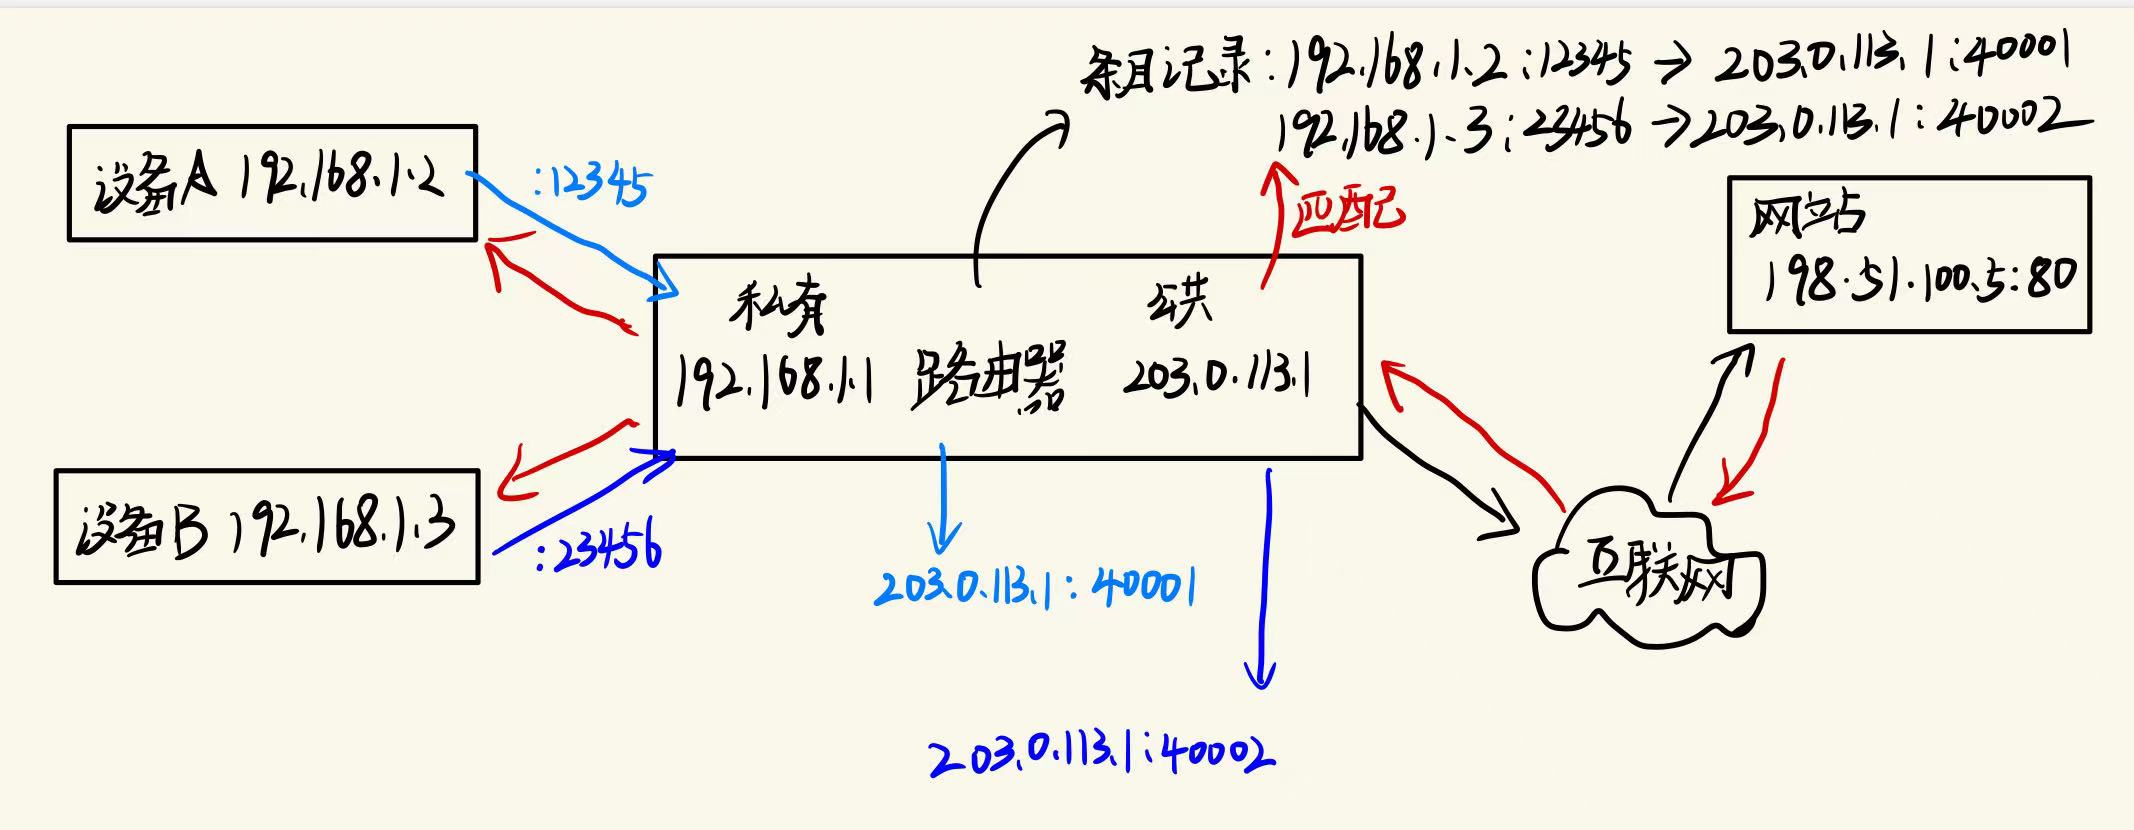 条目记录:192.168.1.2:12345 → 203.0.113.1:40001
192.168.1.3:23456 → 203.0.113.1:40002
设备A 192.168.1.2
:12345
匹配
网站
198.51.100.5:80
私有
公共
192.168.1.1
路由器
203.0.113.1
设备B 192.168.1.3
:23456
203.0.113.1:40001
互联网
203.0.113.1:40002